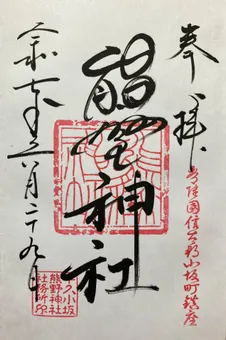 奉拝
常陸國信太郡小坂町鎮座
熊野神社
牛久小坂
熊野神社
社務所印
令和七年六月二十九日